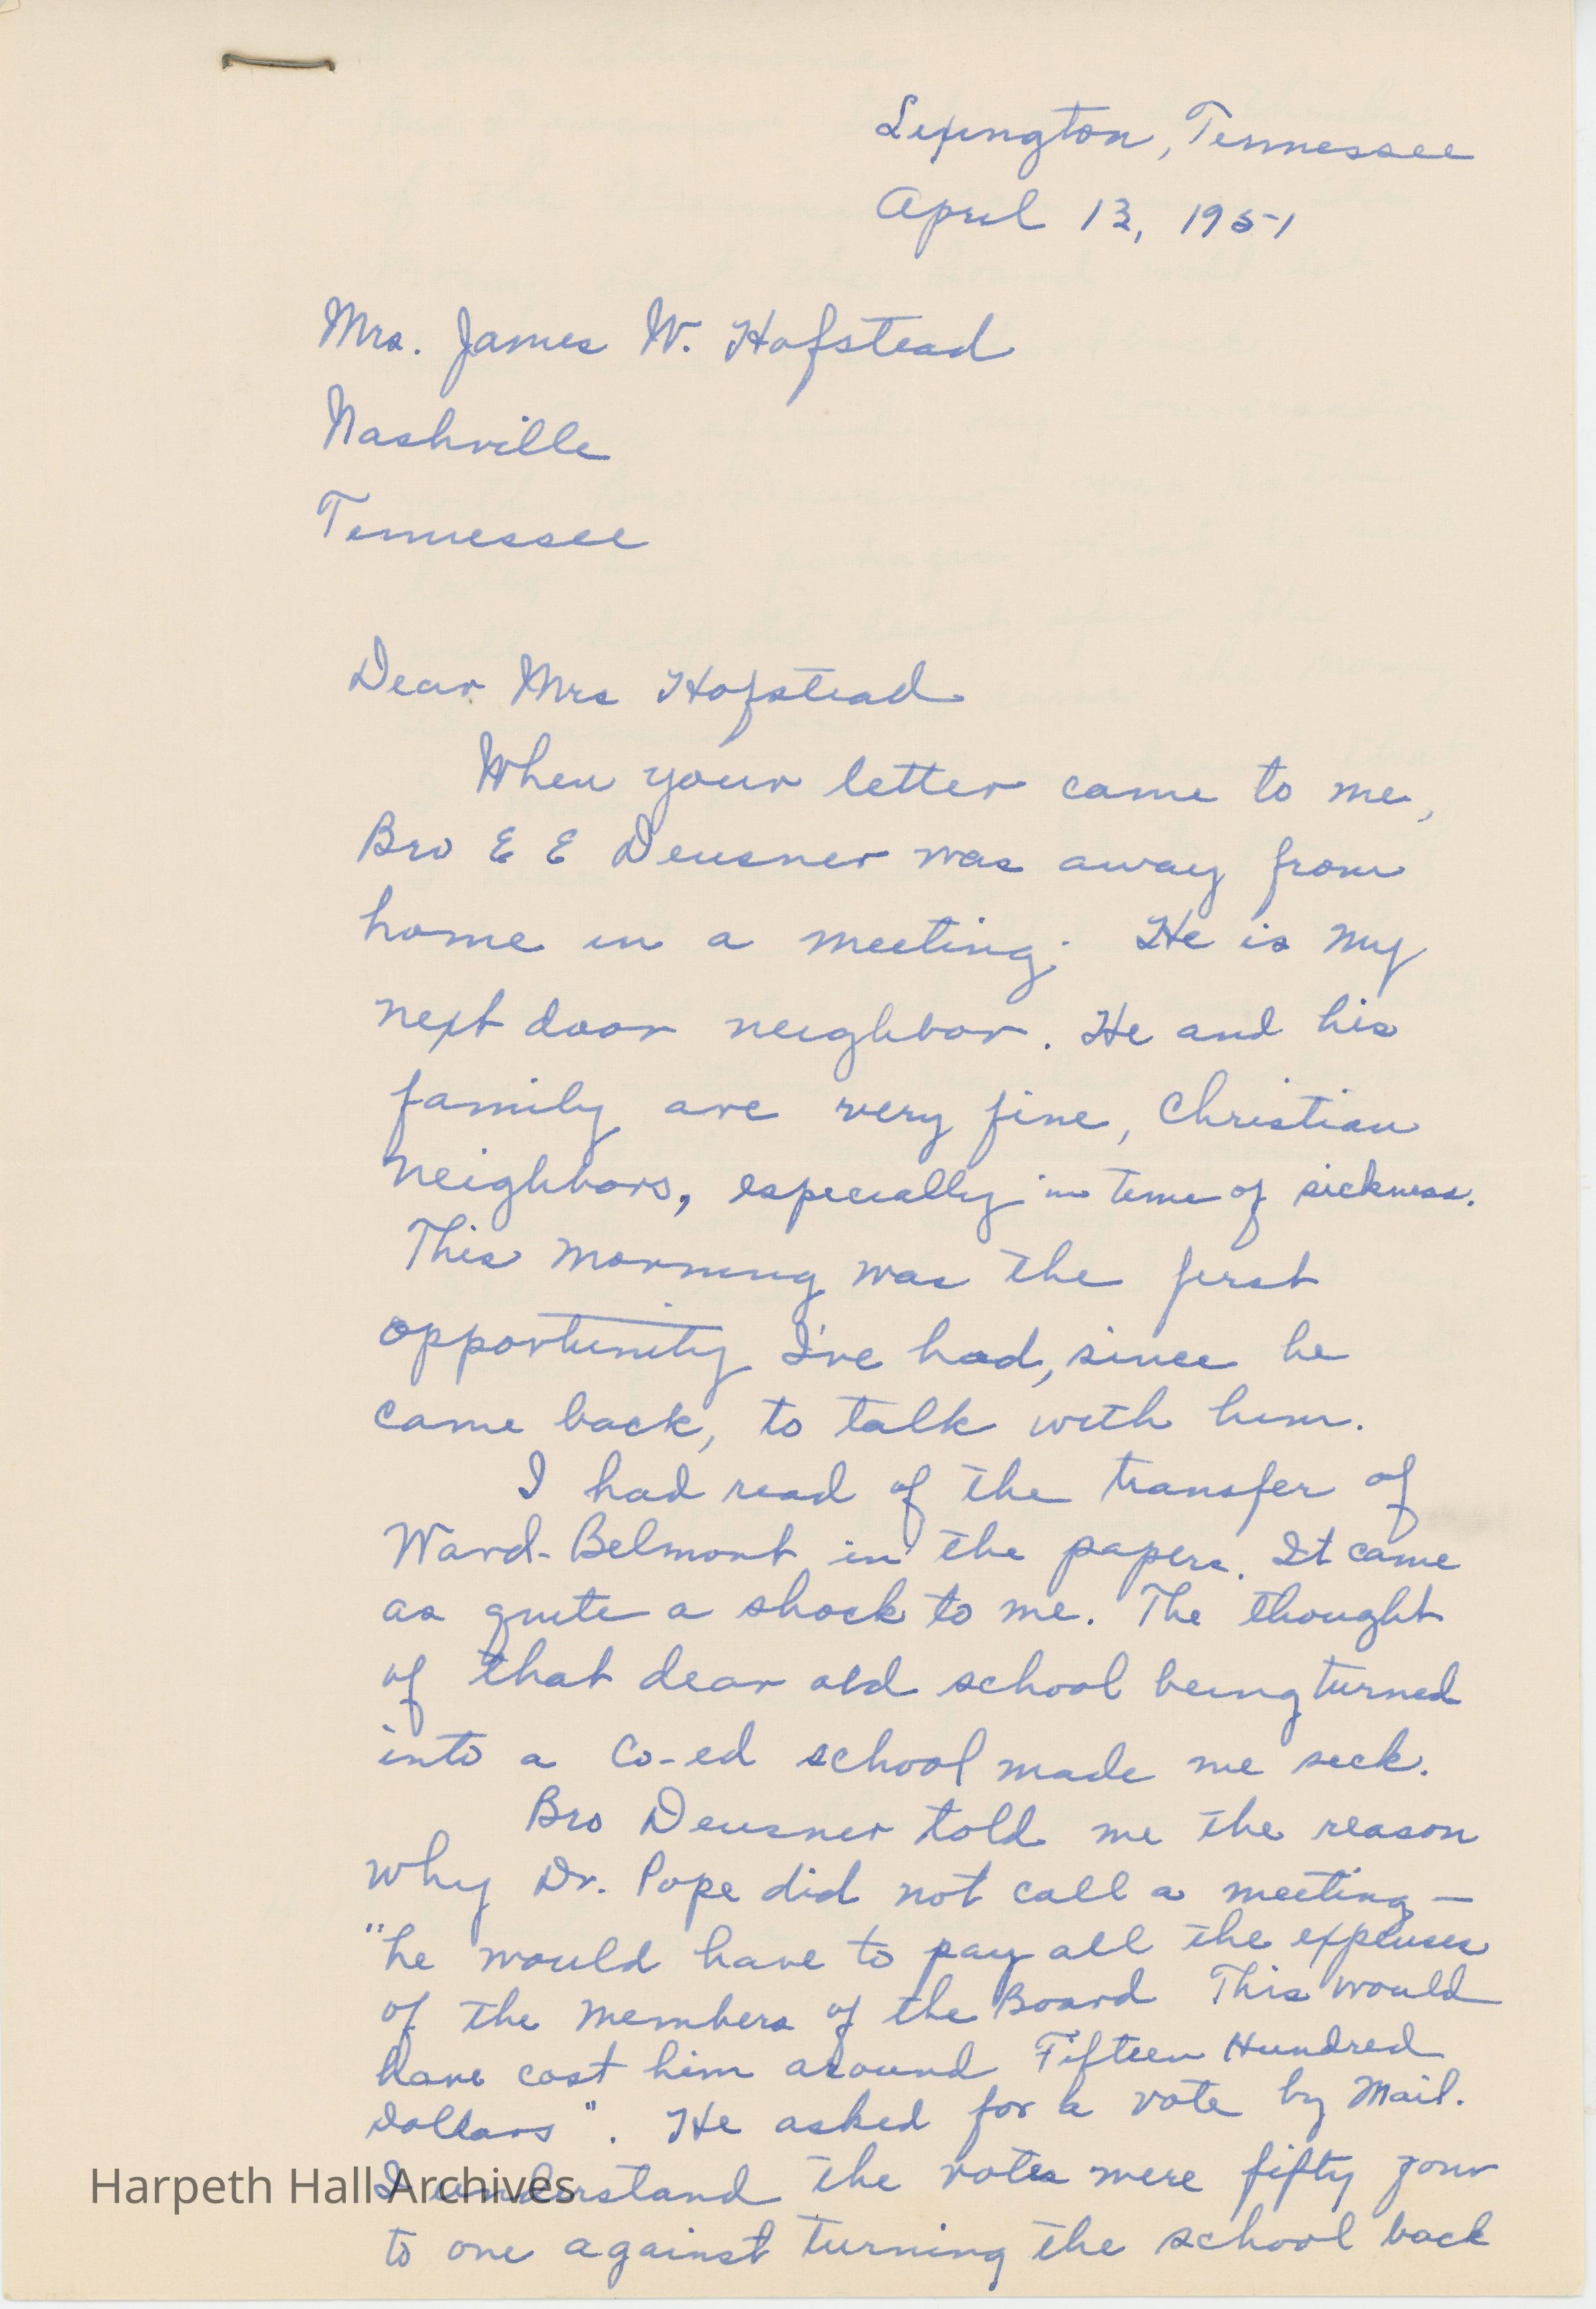 Lexington, Tennessee
April 13, 1951
Mrs. James W. Hofstead
Nashville
Tennessee
Dear Mrs Hofstead
When your letter came to me,
Bro E E Deusner was away from
home in a meeting. He is my
next door neighbor. He and his
family are very fine, Christian
neighbors, especially in time of sickness.
This morning was the first
opportunity I've had, since he
came back, to talk with him.
I had read of the transfer of
Ward-Belmont in the papers. It came
as quite a shock to me. The thought
of that dear old school being turned
into a Co-ed school made me sick.
Bro Deusner told me the reason
why Dr. Pope did not call a meeting —
"he would have to pay all the expenses
of the members of the Board This would
have cost him around Fifteen Hundred
Dollars". He asked for a vote by Mail.
I understand the votes were fifty four
to one against turning the school back
Harpeth Hall Archives